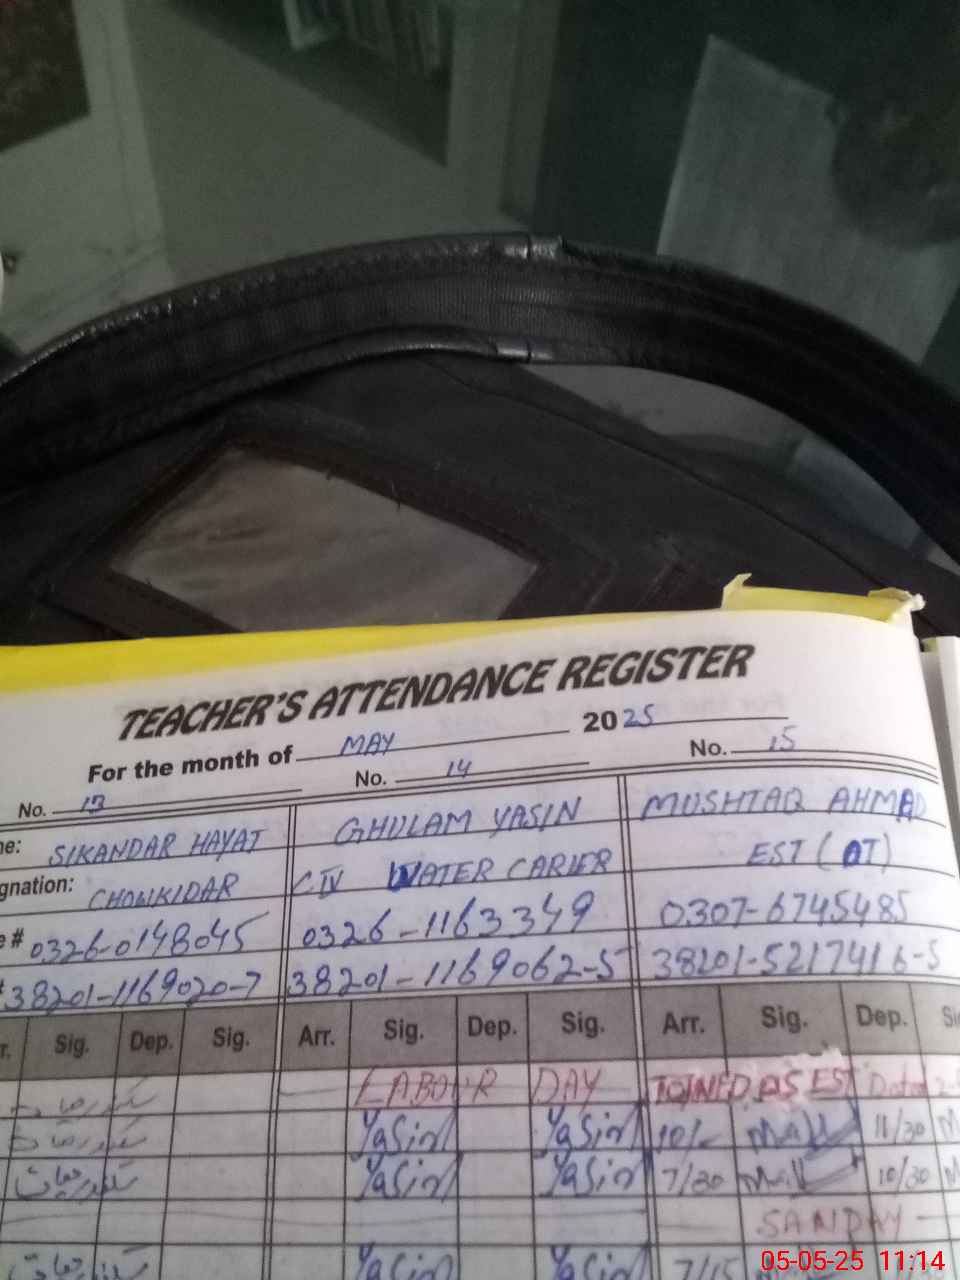 TEACHER'S ATTENDANCE REGISTER
For the month of MAY 2025
No. 13 No. 14 No. 15
ne: SIKANDAR HAYAT GHULAM YASIN MUSHTAQ AHMAD
gnation: CHOWKIDAR C IV WATER CARIER EST (OT)
e # 0326-0148045 0326-1163349 0307-6745485
# 38201-1169020-7 38201-1169062-5 38201-5217416-5
r. Sig. Dep. Sig. Arr. Sig. Dep. Sig. Arr. Sig. Dep. Si
LABOUR DAY JOINED AS EST Dated
Yasin Yasin 10/- 11/30
Yasin Yasin 7/30 10/30
SANDAY
Yasin Yasin 7/15
05-05-25 11:14